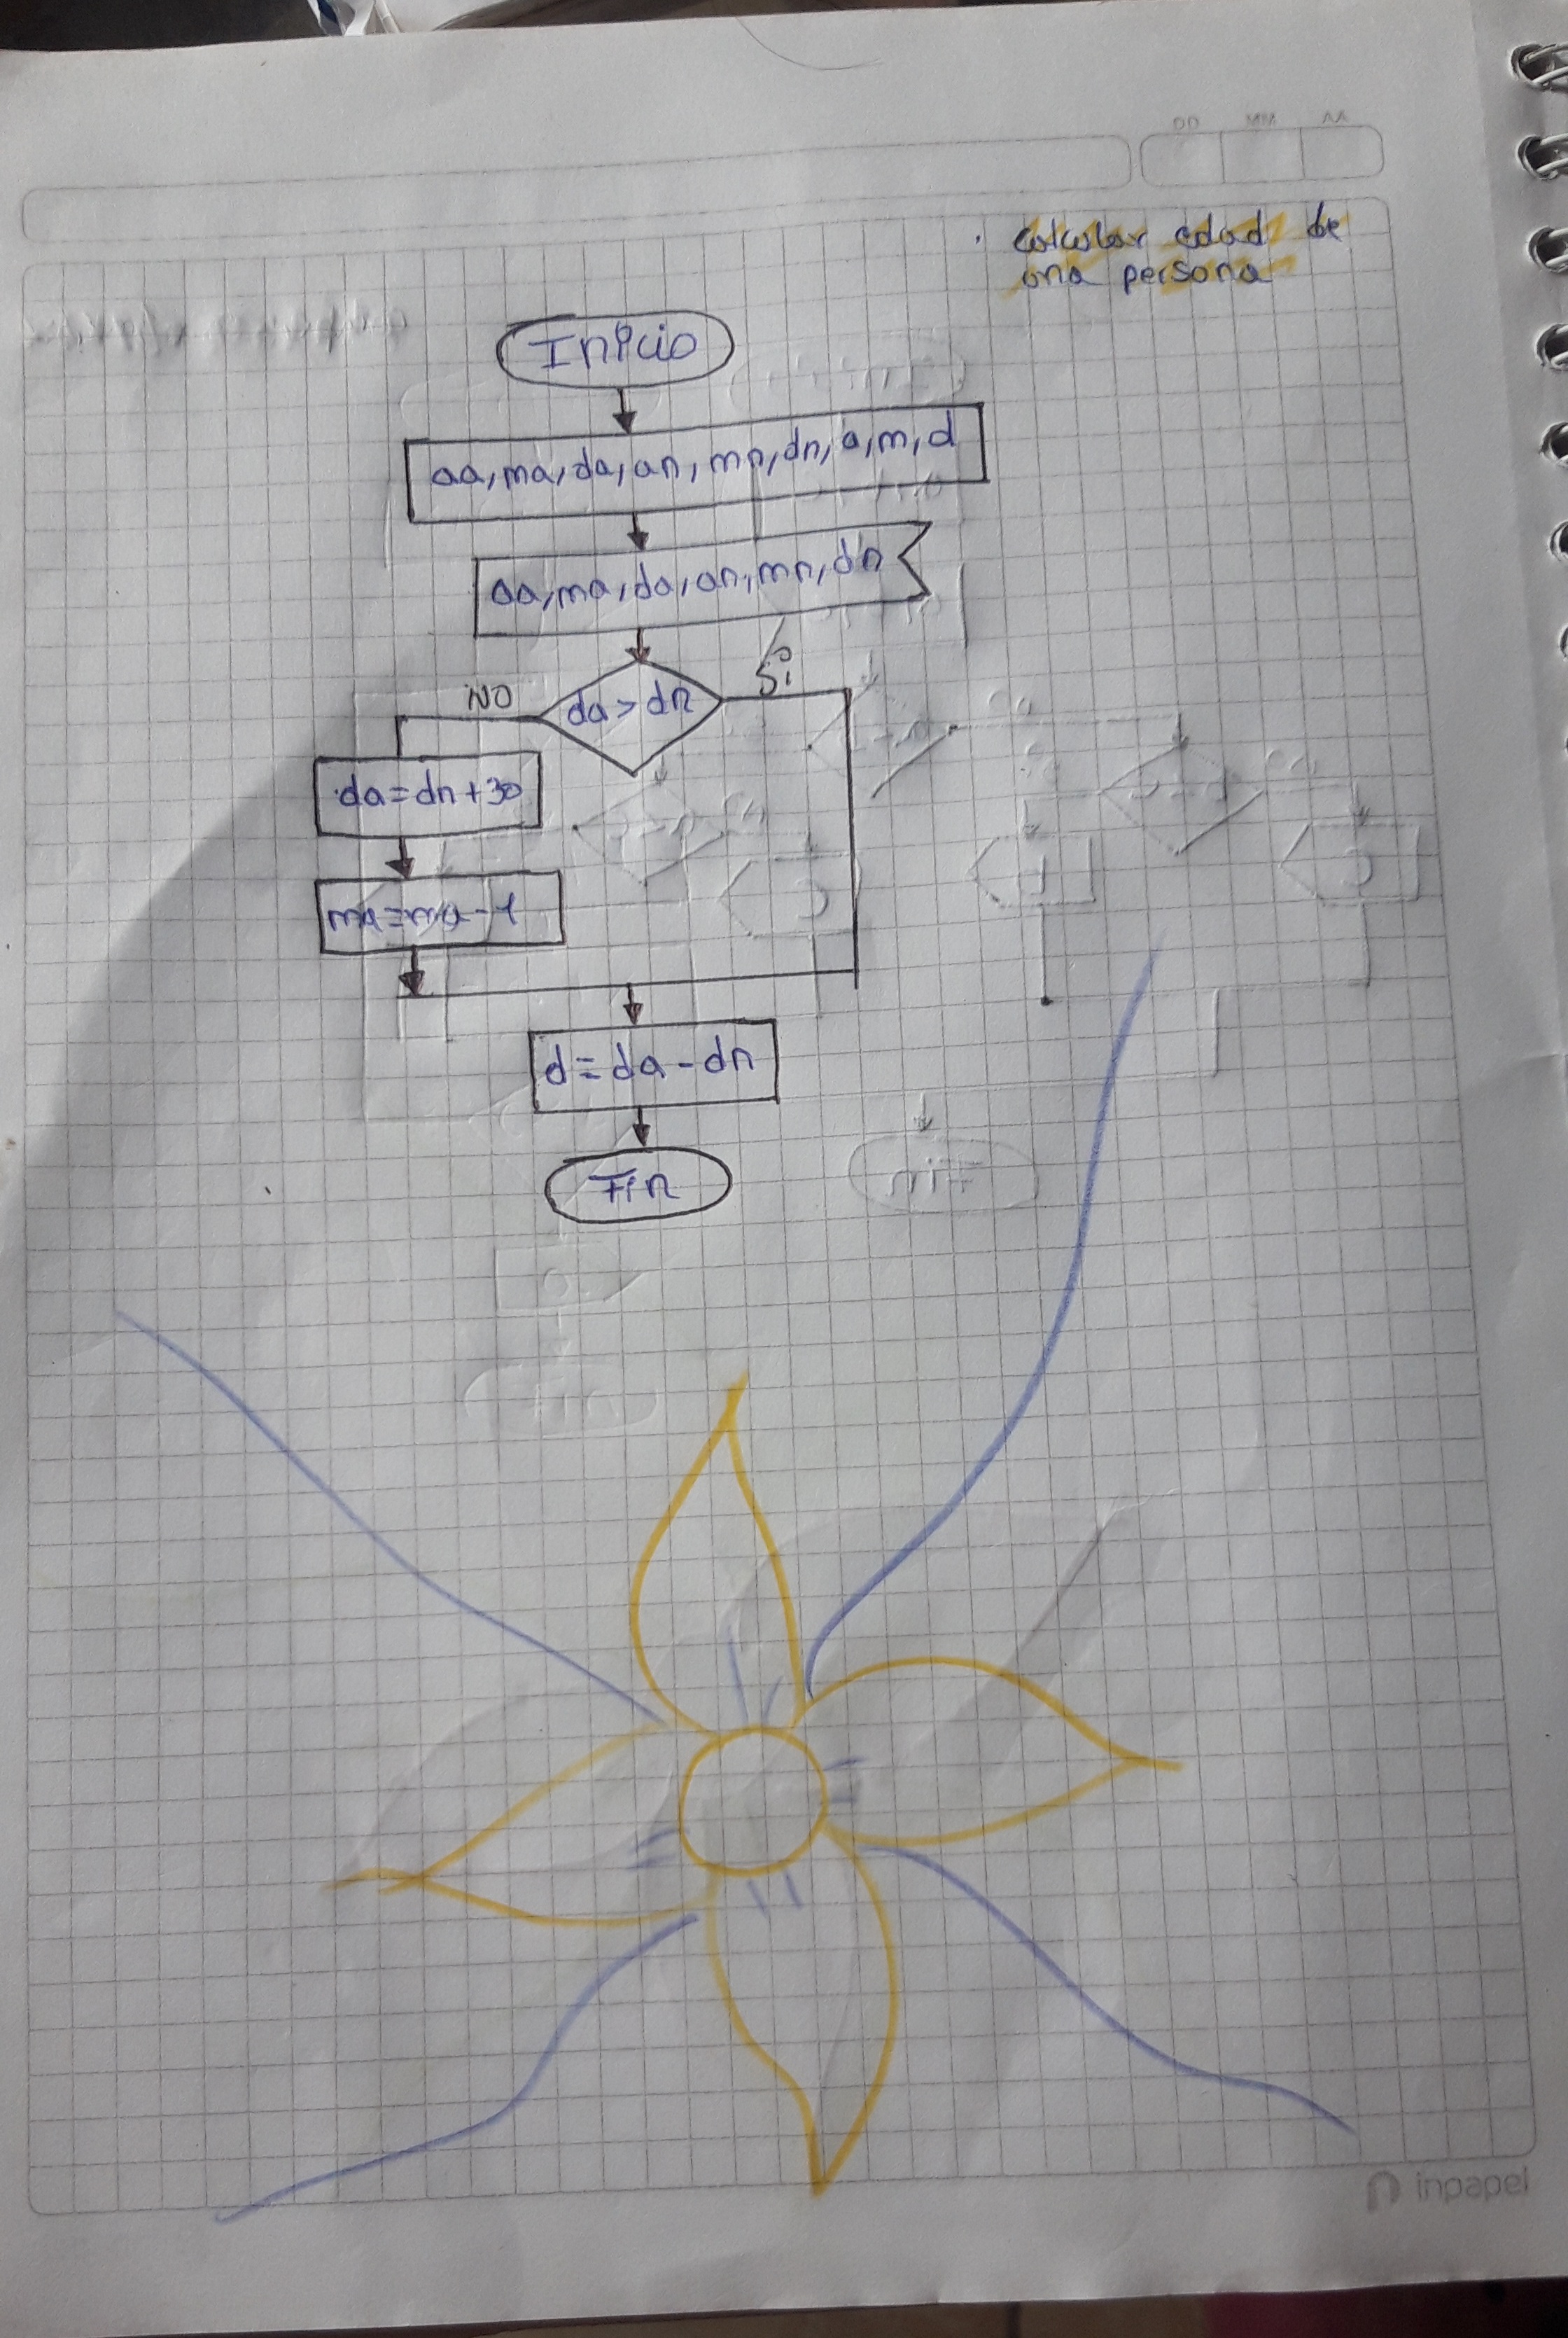 DD MM AA
• calcular edad de
una persona
Inicio
aa, ma, da, an, mn, dn, a, m, d
aa, ma, da, an, mn, dn
da > dn
NO
Si
da = dn + 30
ma = ma - 1
d = da - dn
Fin
Fin
inpapel